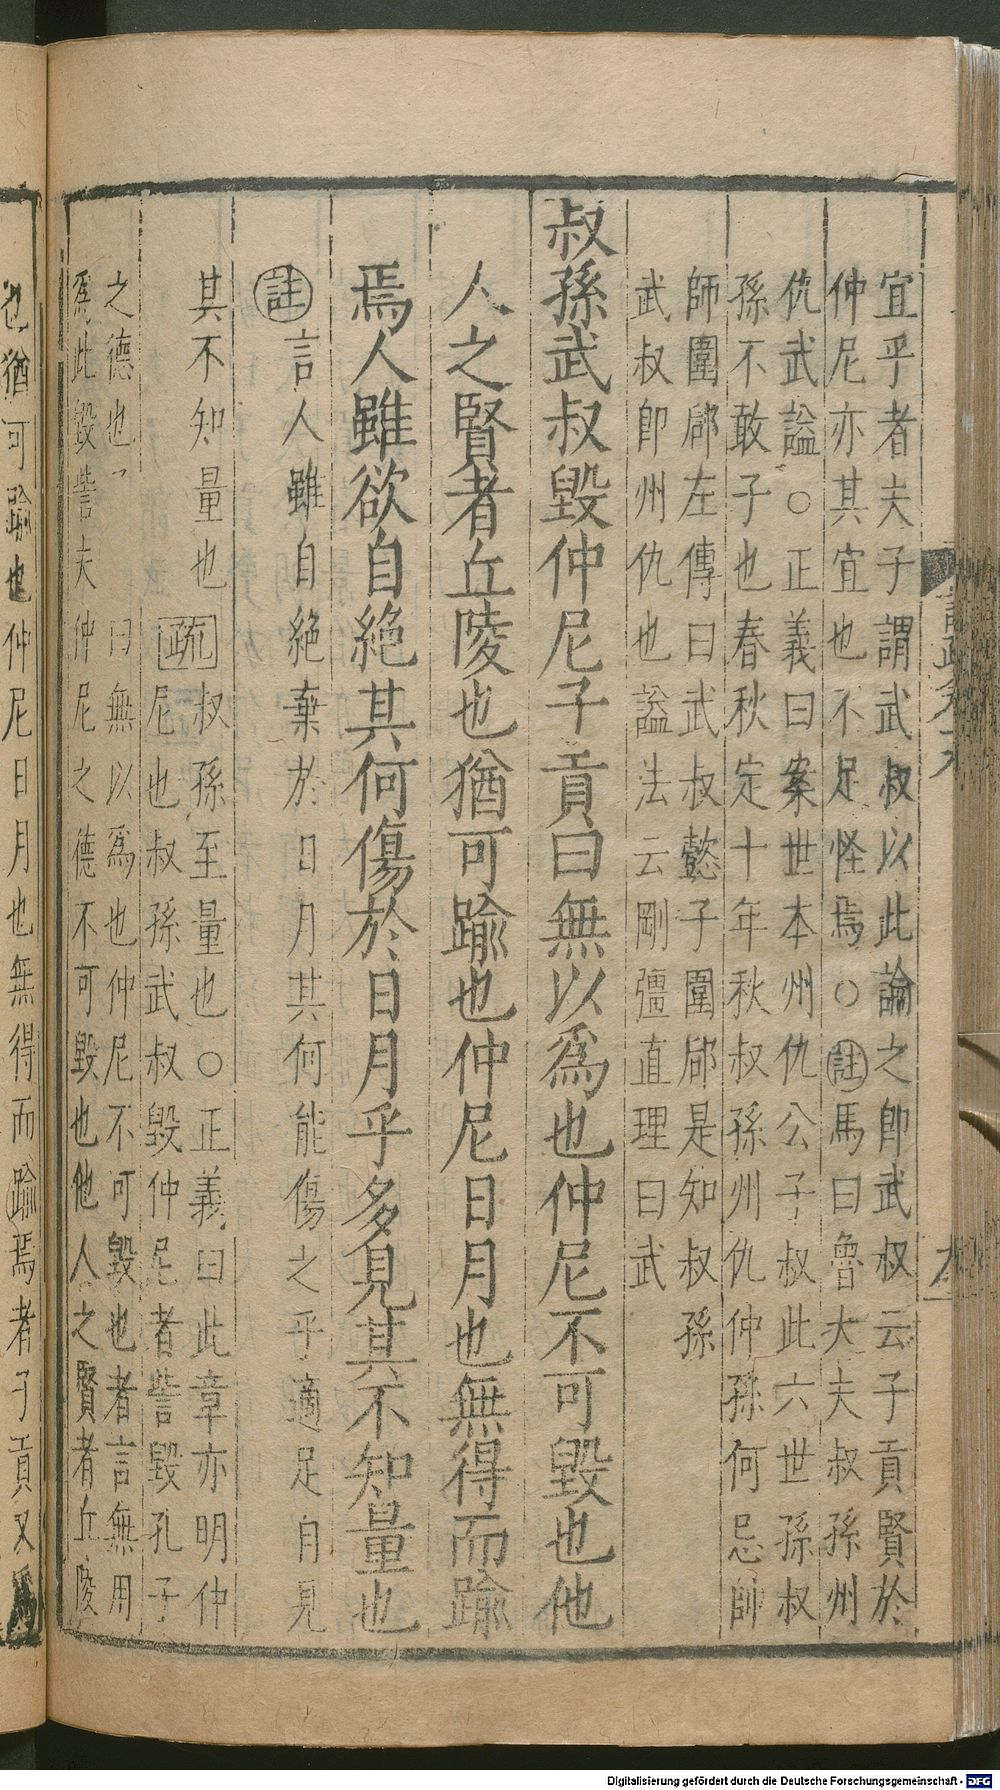 宜乎者夫子謂武叔以此論之卽武叔云子貢賢於
仲尼亦其宜也不足怪焉○註馬曰魯大夫叔孫州
仇武謚○正義曰案世本州仇公子叔此六世孫叔
孫不敢子也春秋定十年秋叔孫州仇仲孫何忌帥
師圍郈左傳曰武叔懿子圍郈是知叔孫
武叔卽州仇也謚法云剛彊直理曰武
叔孫武叔毀仲尼子貢曰無以爲也仲尼不可毀也他
人之賢者丘陵也猶可踰也仲尼日月也無得而踰
焉人雖欲自絶其何傷於日月乎多見其不知量也
註言人雖自絶棄於日月其何能傷之乎適足自見
其不知量也疏叔孫至量也○正義曰此章亦明仲
尼也叔孫武叔毀仲尼者訾毀孔子
之德也 曰無以爲也仲尼不可毀也者言無用
爲此毀訾夫仲尼之德不可毀也他人之賢者丘陵
也猶可踰也仲尼日月也無得而踰焉者子貢又爲
Digitalisierung gefördert durch die Deutsche Forschungsgemeinschaft - DFG